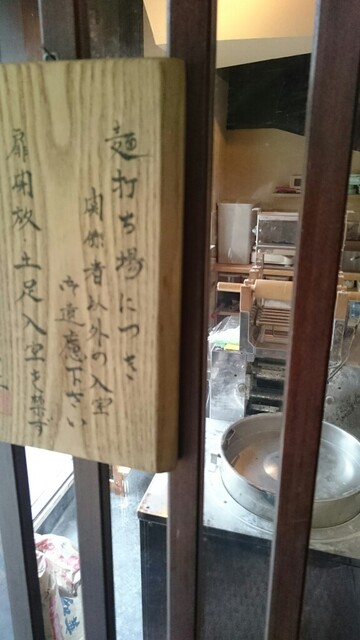 麺打ち場につき
関係者以外の入室
御遠慮下さい
扉開放・土足入室を禁ず